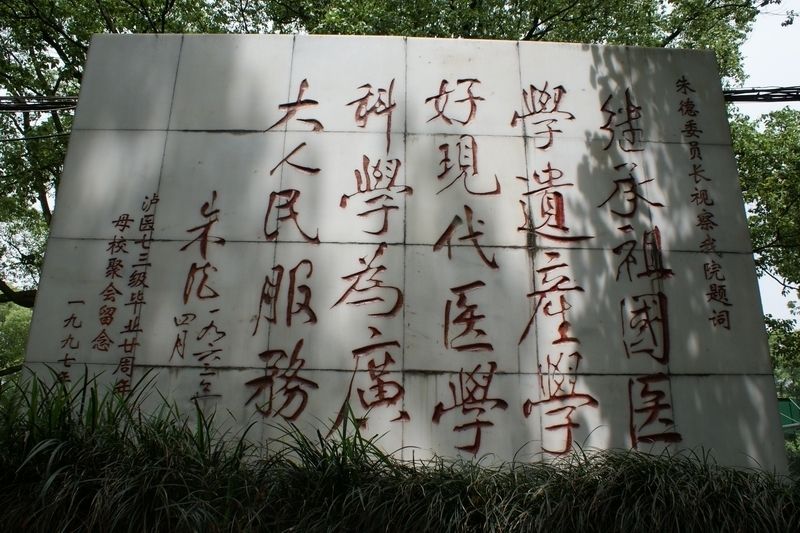 朱德委员长视察我院题词
继承祖國医
學遺產学
好現代医學
科學為廣
大人民服務
朱德 一九六三年
四月
泸医七三级毕业廿周年
母校聚会留念
一九九七年